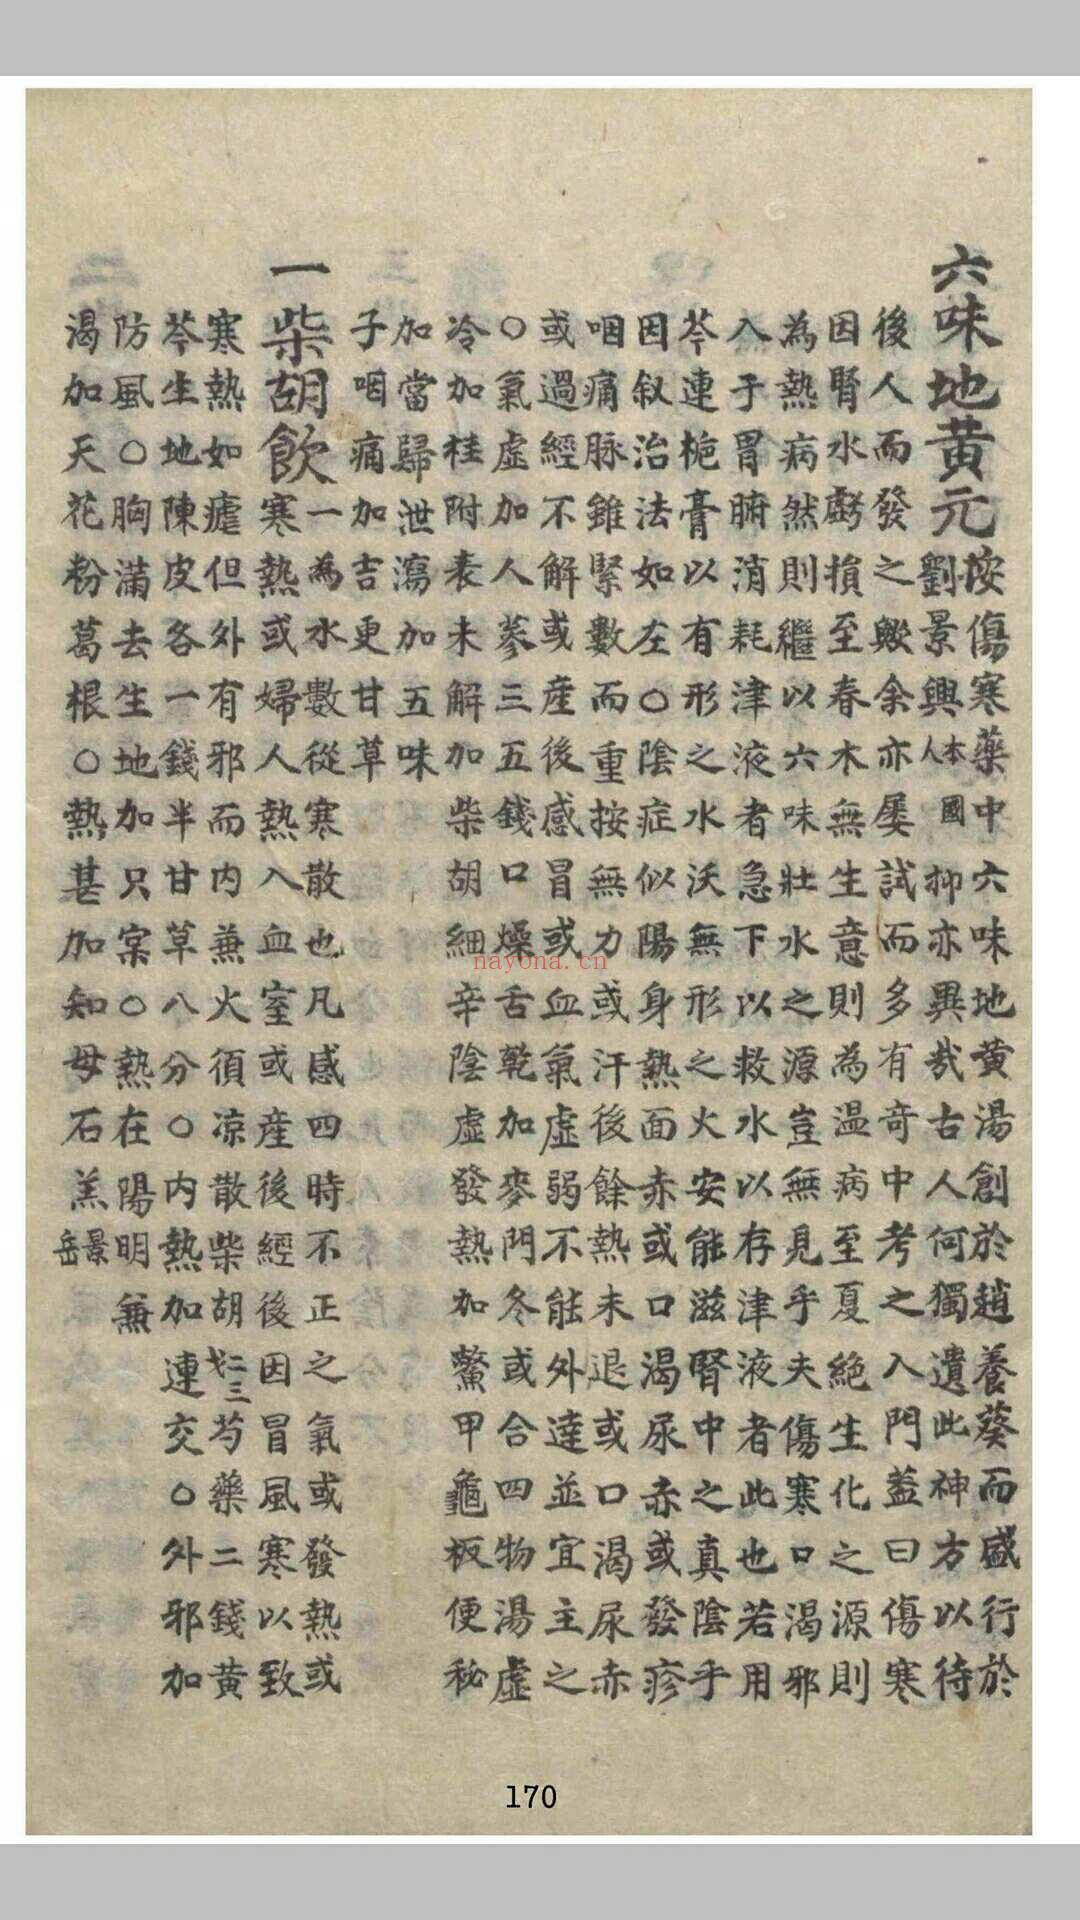 六味地黄元
按傷寒藥中六味地黄湯創於趙養葵而盛行於
劉景興本國人抑亦異哉古人何獨遺此神方以待
後人而發之歟余亦屡試而多有奇中考之入門蓋曰傷寒
因腎水虧損至春木無生意則為温病至夏絶生化之源則
為熱病然則繼以六味壯水之源豈無見乎夫傷寒口渴邪
入于胃腑消耗津液者急下以救水以存津液者此也若用
芩連梔膏以有形之水沃無形之火安能滋腎中之真陰乎
因叙治法如左○陰症似陽身熱面赤或口渴尿赤或發疹
咽痛脉雖緊數而重按無力或汗後餘熱未退或口渴尿赤
或過經不解或産後感冒或血氣虚弱不能外達並宜主之
○氣虚加人蔘三五錢口燥舌乾加麥門冬或合四物湯虚
冷加桂附表未解加柴胡細辛陰虚發熱加鱉甲龜板便秘
加當歸泄瀉加五味
子咽痛加吉更甘草
一柴胡飲
一為水數從寒散也凡感四時不正之氣或發熱或
寒熱或婦人熱入血室或産後經後因冒風寒以致
寒熱如瘧但外有邪而内兼火須凉散柴胡二三戈芍藥二錢黄
芩生地陳皮各一錢半甘草八分○内熱加連交○外邪加
防風○胸滿去生地加只宲○熱在陽明兼
渴加天花粉葛根○熱甚加知母石羔景岳
nayona.cn
170